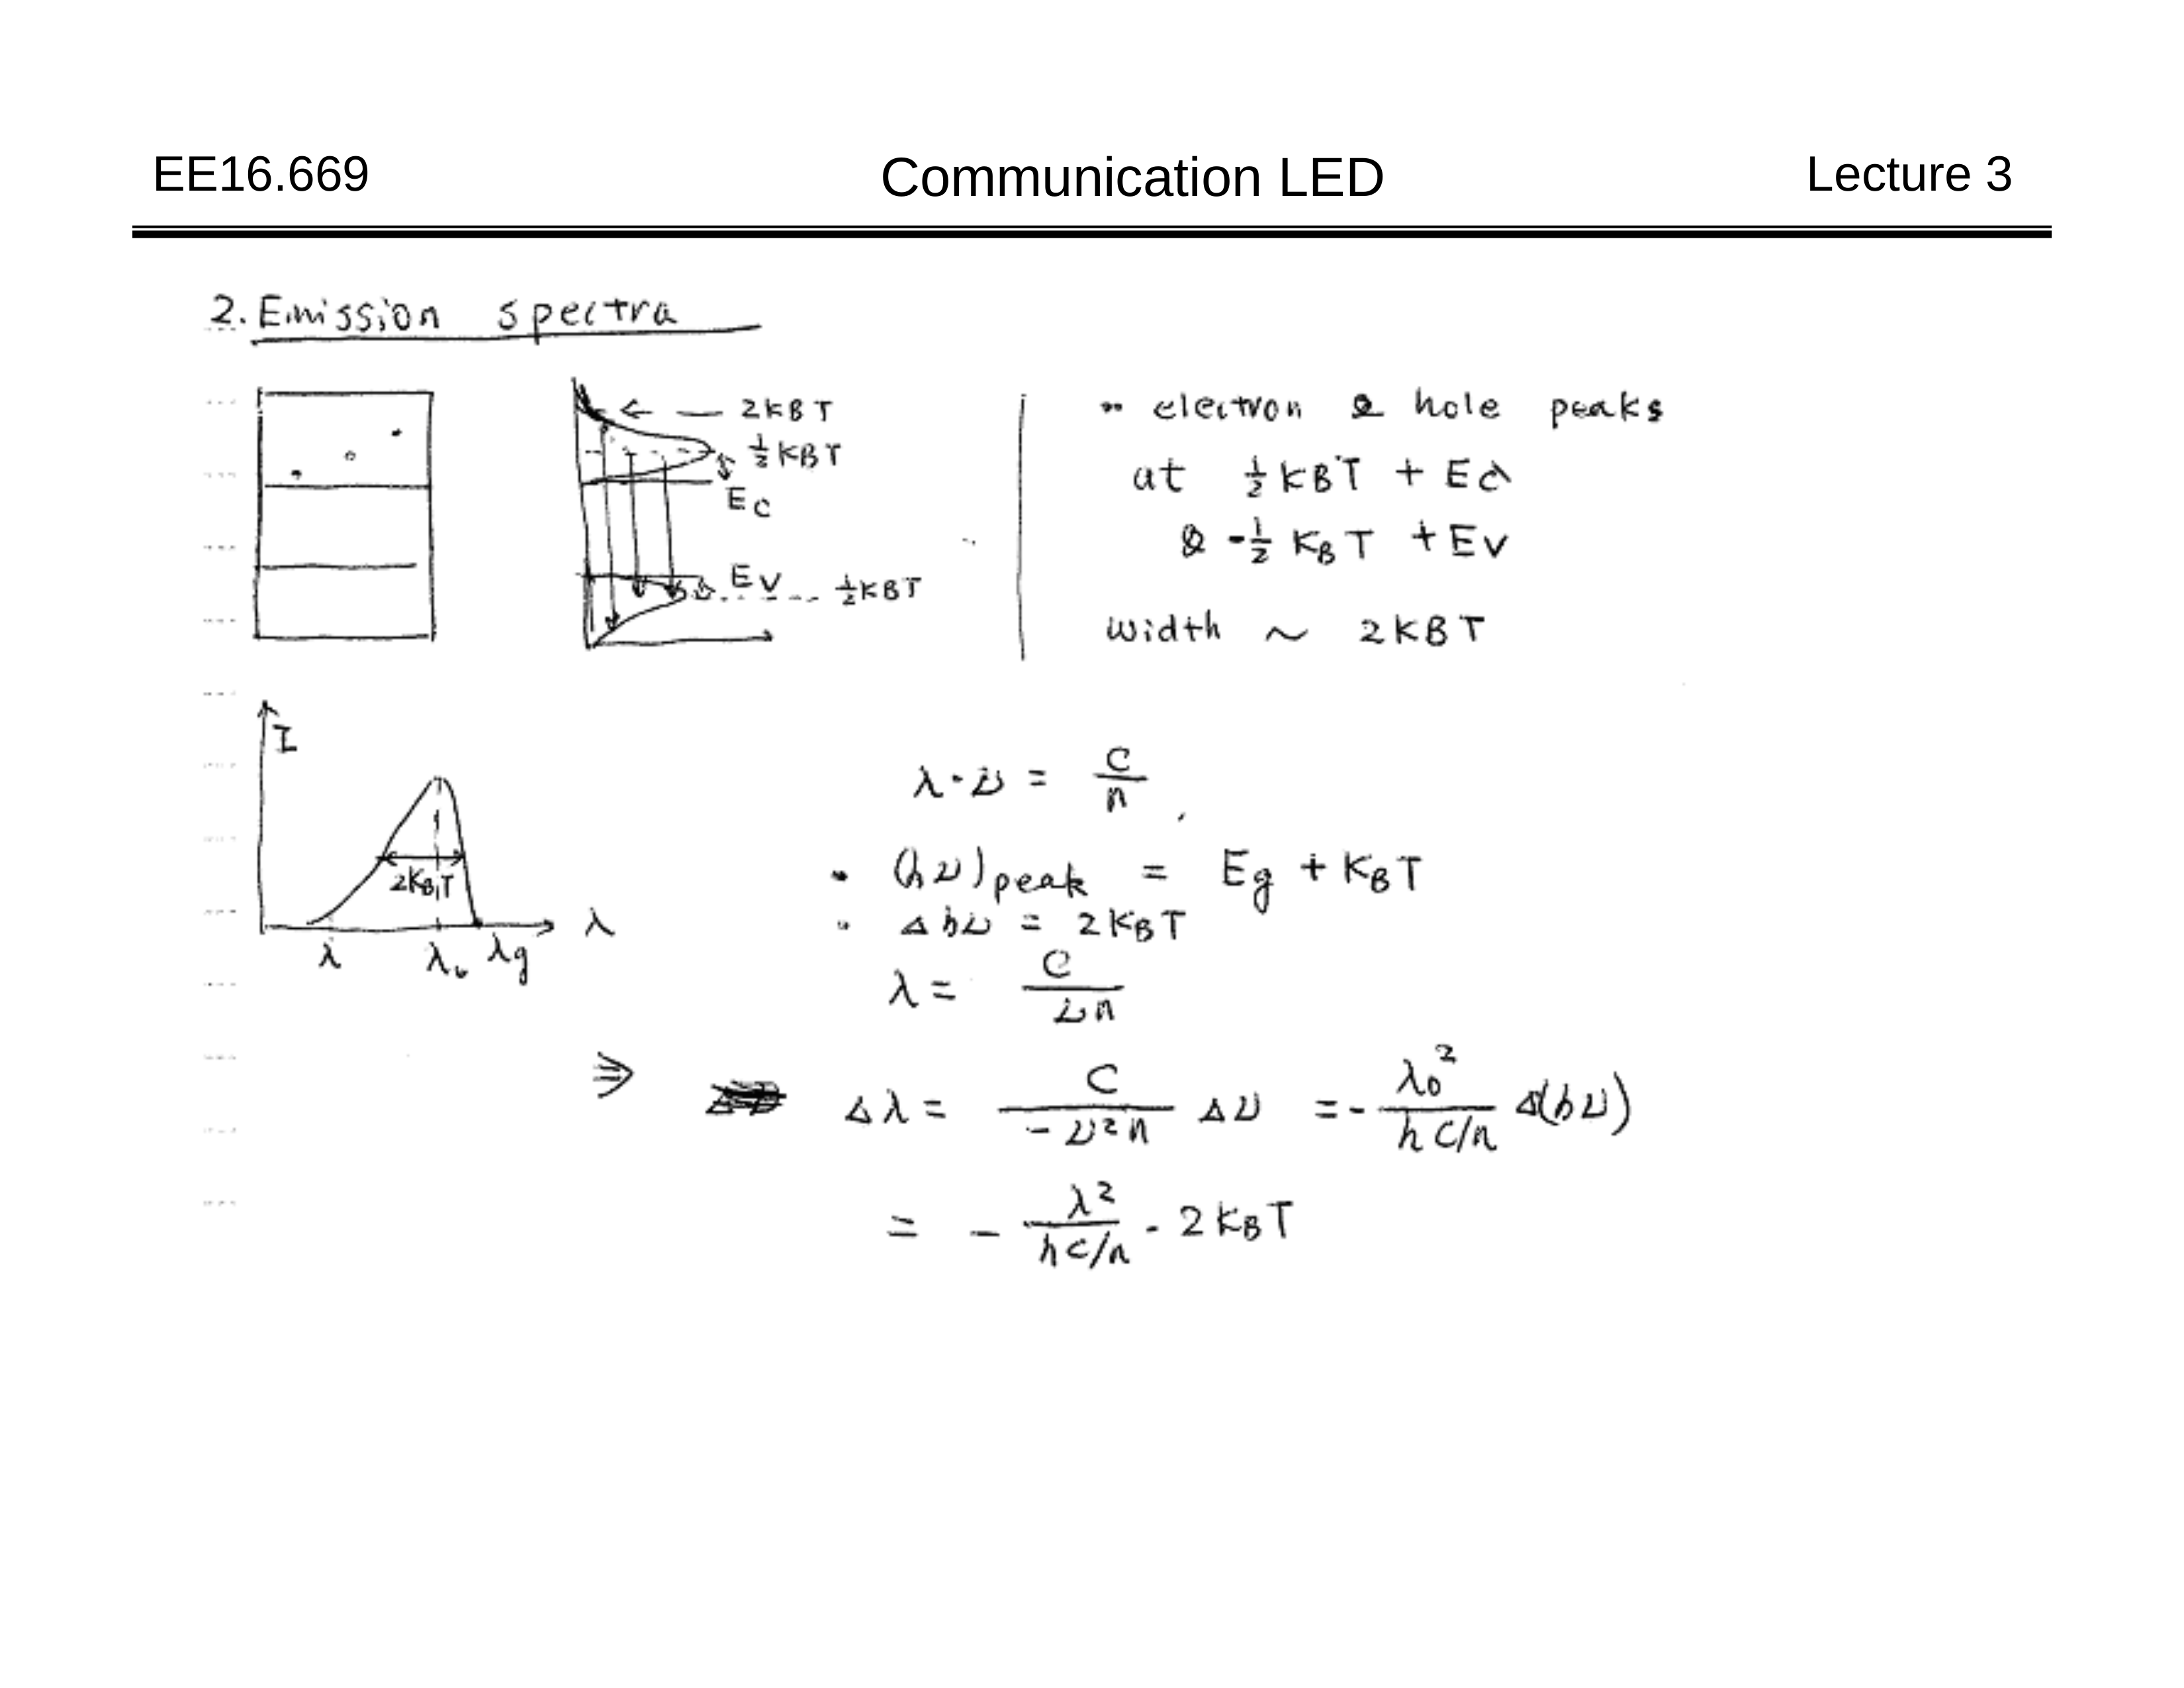 EE16.669 Communication LED Lecture 3
2. Emission spectra
2KBT
½KBT
Ec
Ev ½KBT
electron & hole peaks
at ½KBT + Ec
& -½KBT + Ev
width ~ 2KBT
I
2KBT
λ
λ λ₀ λg
λ·ν = c/n
• (hν)peak = Eg + KBT
• Δhν = 2KBT
λ = c/νn
⇒ Δλ = c/-ν²n Δν = - λ₀²/hc/n Δ(hν)
= - λ²/hc/n · 2KBT